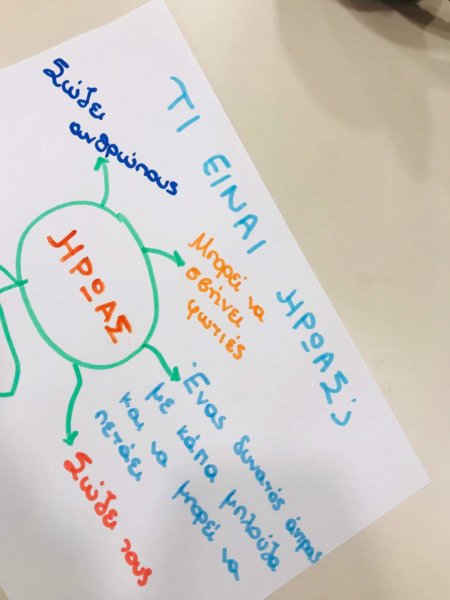 ΤΙ ΕΙΝΑΙ ΗΡΩΑΣ;
Σώζει
ανθρώπους
ΗΡΩΑΣ
Μπορεί να
σβήνει
φωτιές
Ένας δυνατός άντρας
με κάπα μπλούζα
και να μπορεί να
πετάει
Σώζει τους